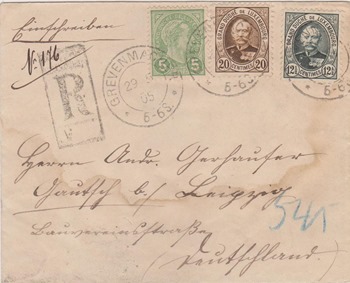 Einschreiben
N. 176
R
5 5
GREVENMA
29
95
5-6S.
GRAND DUCHÉ DE LUXEMBOURG
20 20
CENTIMES
5-6S
GRAND DUCHÉ DE LUXEMBOURG
12½ 12½
CENTIMES
Herrn Andr. Gerhauser
Gautsch b/ Leipzig
Bauvereinsstraße
(Deutschland.)
541